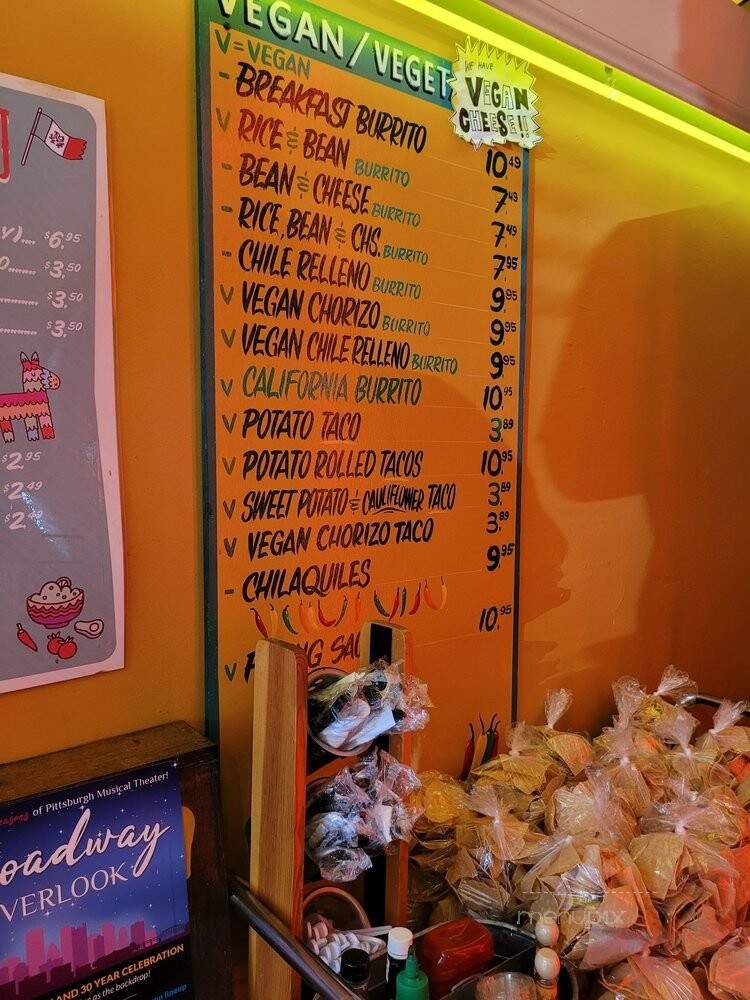 VEGAN / VEGET
WE HAVE
VEGAN
CHEESE!!
V=VEGAN
- BREAKFAST BURRITO 10.49
V RICE & BEAN BURRITO 7.49
- BEAN & CHEESE BURRITO 7.49
- RICE, BEAN & CHS. BURRITO 7.95
- CHILE RELLENO BURRITO 9.95
V VEGAN CHORIZO BURRITO 9.95
V VEGAN CHILE RELLENO BURRITO 9.95
V CALIFORNIA BURRITO 10.95
V POTATO TACO 3.89
V POTATO ROLLED TACOS 10.95
V SWEET POTATO & CAULIFLOWER TACO 3.89
V VEGAN CHORIZO TACO 3.89
- CHILAQUILES 9.95
10.95
V
$6.95
$3.50
$3.50
$3.50
$2.95
$2.49
of Pittsburgh Musical Theater!
oadway
VERLOOK
AND 30 YEAR CELEBRATION
as the backdrop!
lineup
menupix